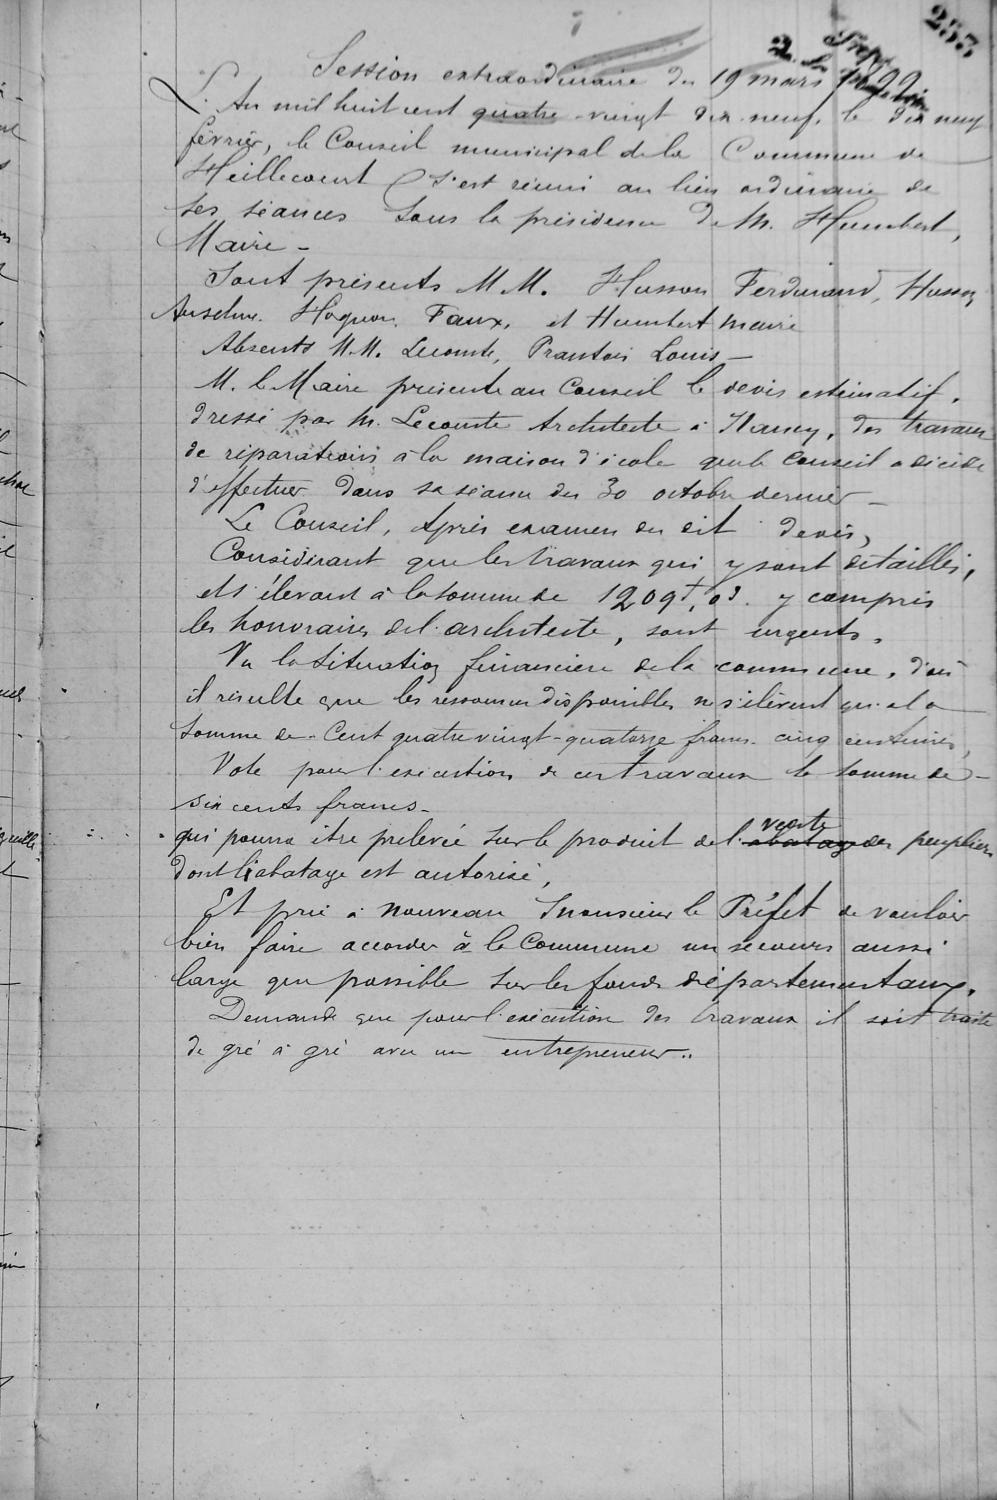 253
Session extraordinaire du 19 mars 1899
L'An mil huit cent quatre-vingt dix-neuf, le dix neuf
février, le Conseil municipal de la Commune de
Heillecourt s'est réuni au lieu ordinaire de
ses séances sous la présidence de M. Humbert,
Maire -
Sont présents M M. Husson Ferdinand, Husson
Anselme. Hoguon. Faux, et Humbert maire
Absents M.M. Lecomte, Prantois Louis -
M. le Maire présente au Conseil le devis estimatif,
dressé par M. Lecomte Architecte à Nancy, des travaux
de réparations à la maison d'école que le Conseil a décidé
d'effectuer dans sa séance du 30 octobre dernier -
Le Conseil, Après examen du dit devis,
Considérant que les travaux qui y sont détaillés,
et s'élevant à la somme de 1209f,03. y compris
les honoraires de l'architecte, sont urgents.
Vu la situation financière de la commune, d'où
il résulte que les ressources disponibles ne s'élèvent qu'à la
somme de - Cent quatre vingt-quatorze francs cinq centimes,
Vote pour l'exécution de ces travaux la somme de -
six cents francs -
qui pourra être prélevée sur le produit de l'abatage vente des peupliers
dont l'abatage est autorisé,
Et prie à nouveau Monsieur le Préfet de vouloir
bien faire accorder à la Commune un secours aussi
large que possible sur les fonds départementaux.
Demande que pour l'exécution des travaux il soit traité
de gré à gré avec un entrepreneur..